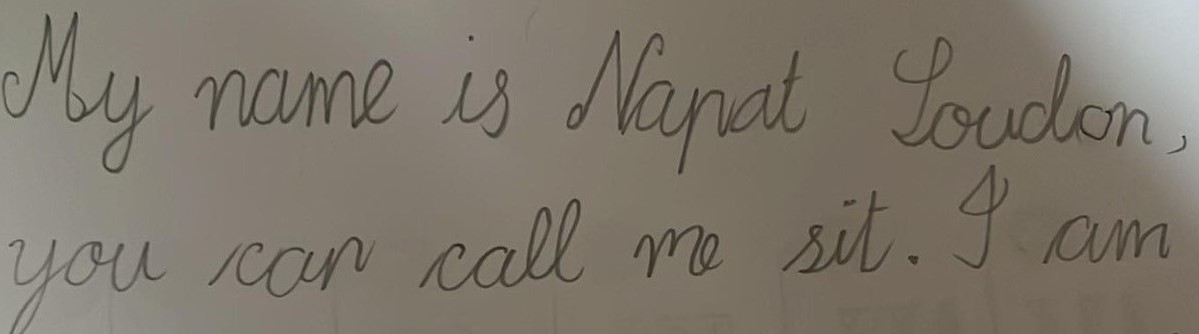 My name is Napat Loudon,
you can call me sit. I am